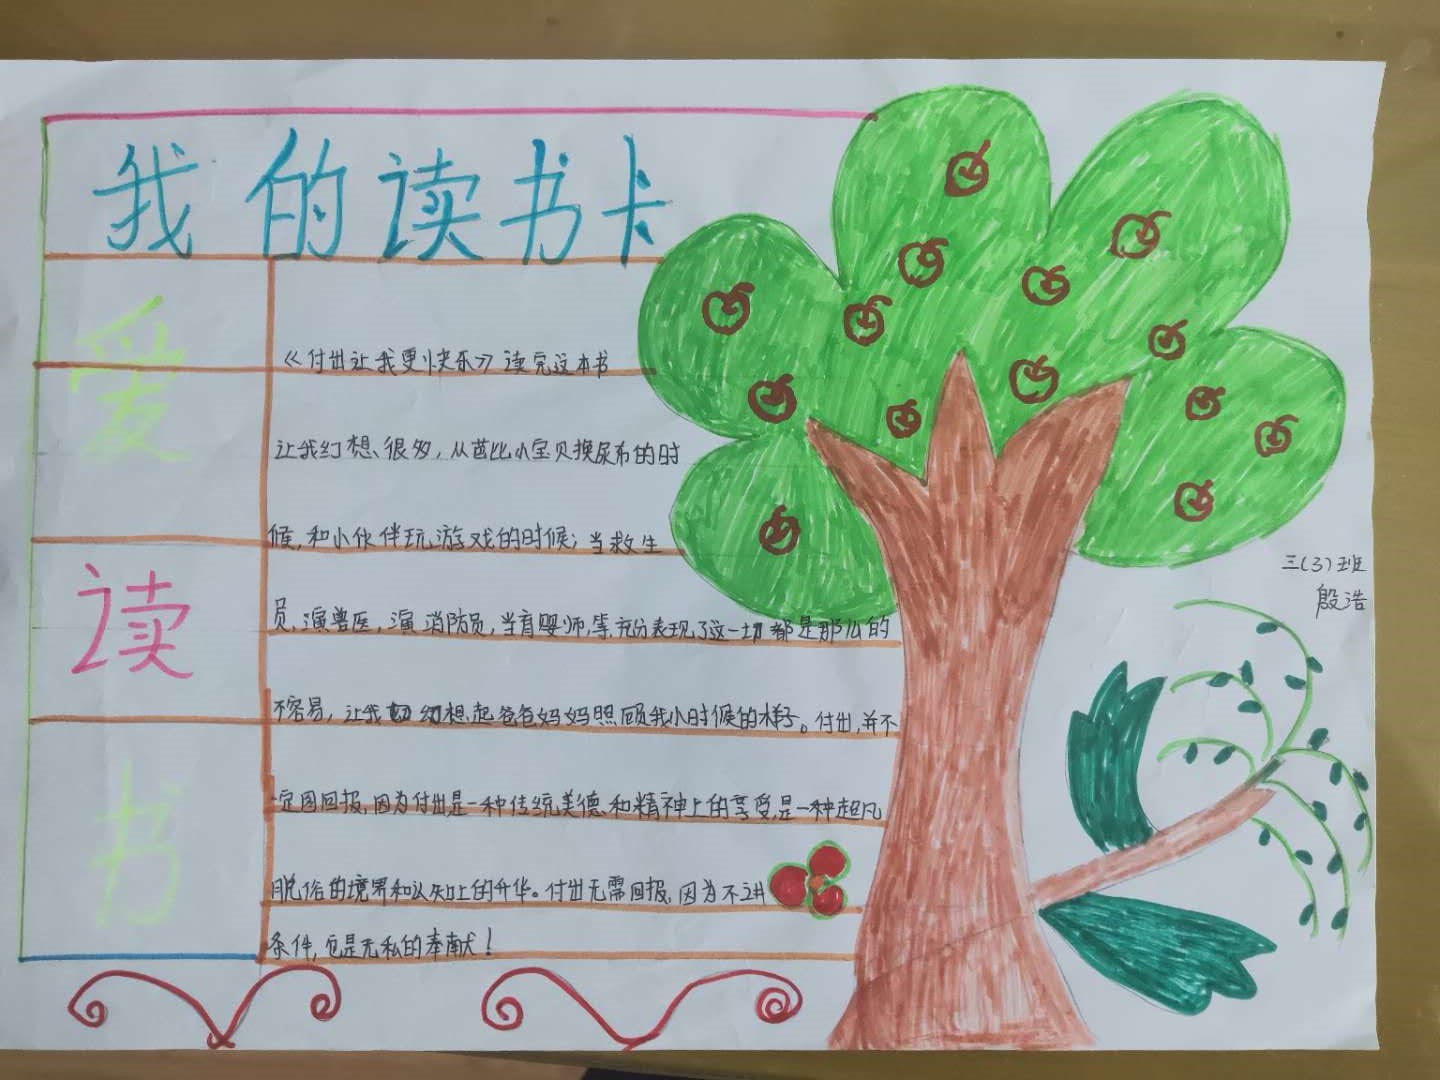 我的读书卡
爱
读
书
《付出让我更快乐》读完这本书
让我幻想、很多，从芭比小宝贝换尿布的时
候，和小伙伴玩游戏的时候；当救生
员，演兽医，演消防员，当育婴师，等，充分表现了这一切都是那么的
不容易，让我幻想起爸爸妈妈照顾我小时候的样子。付出，并不
一定图回报，因为付出是一种传统美德和精神上的享受，是一种超凡
脱俗的境界和认知上的升华。付出无需回报，因为不讲
条件，也是无私的奉献！
三(3)班
殷浩